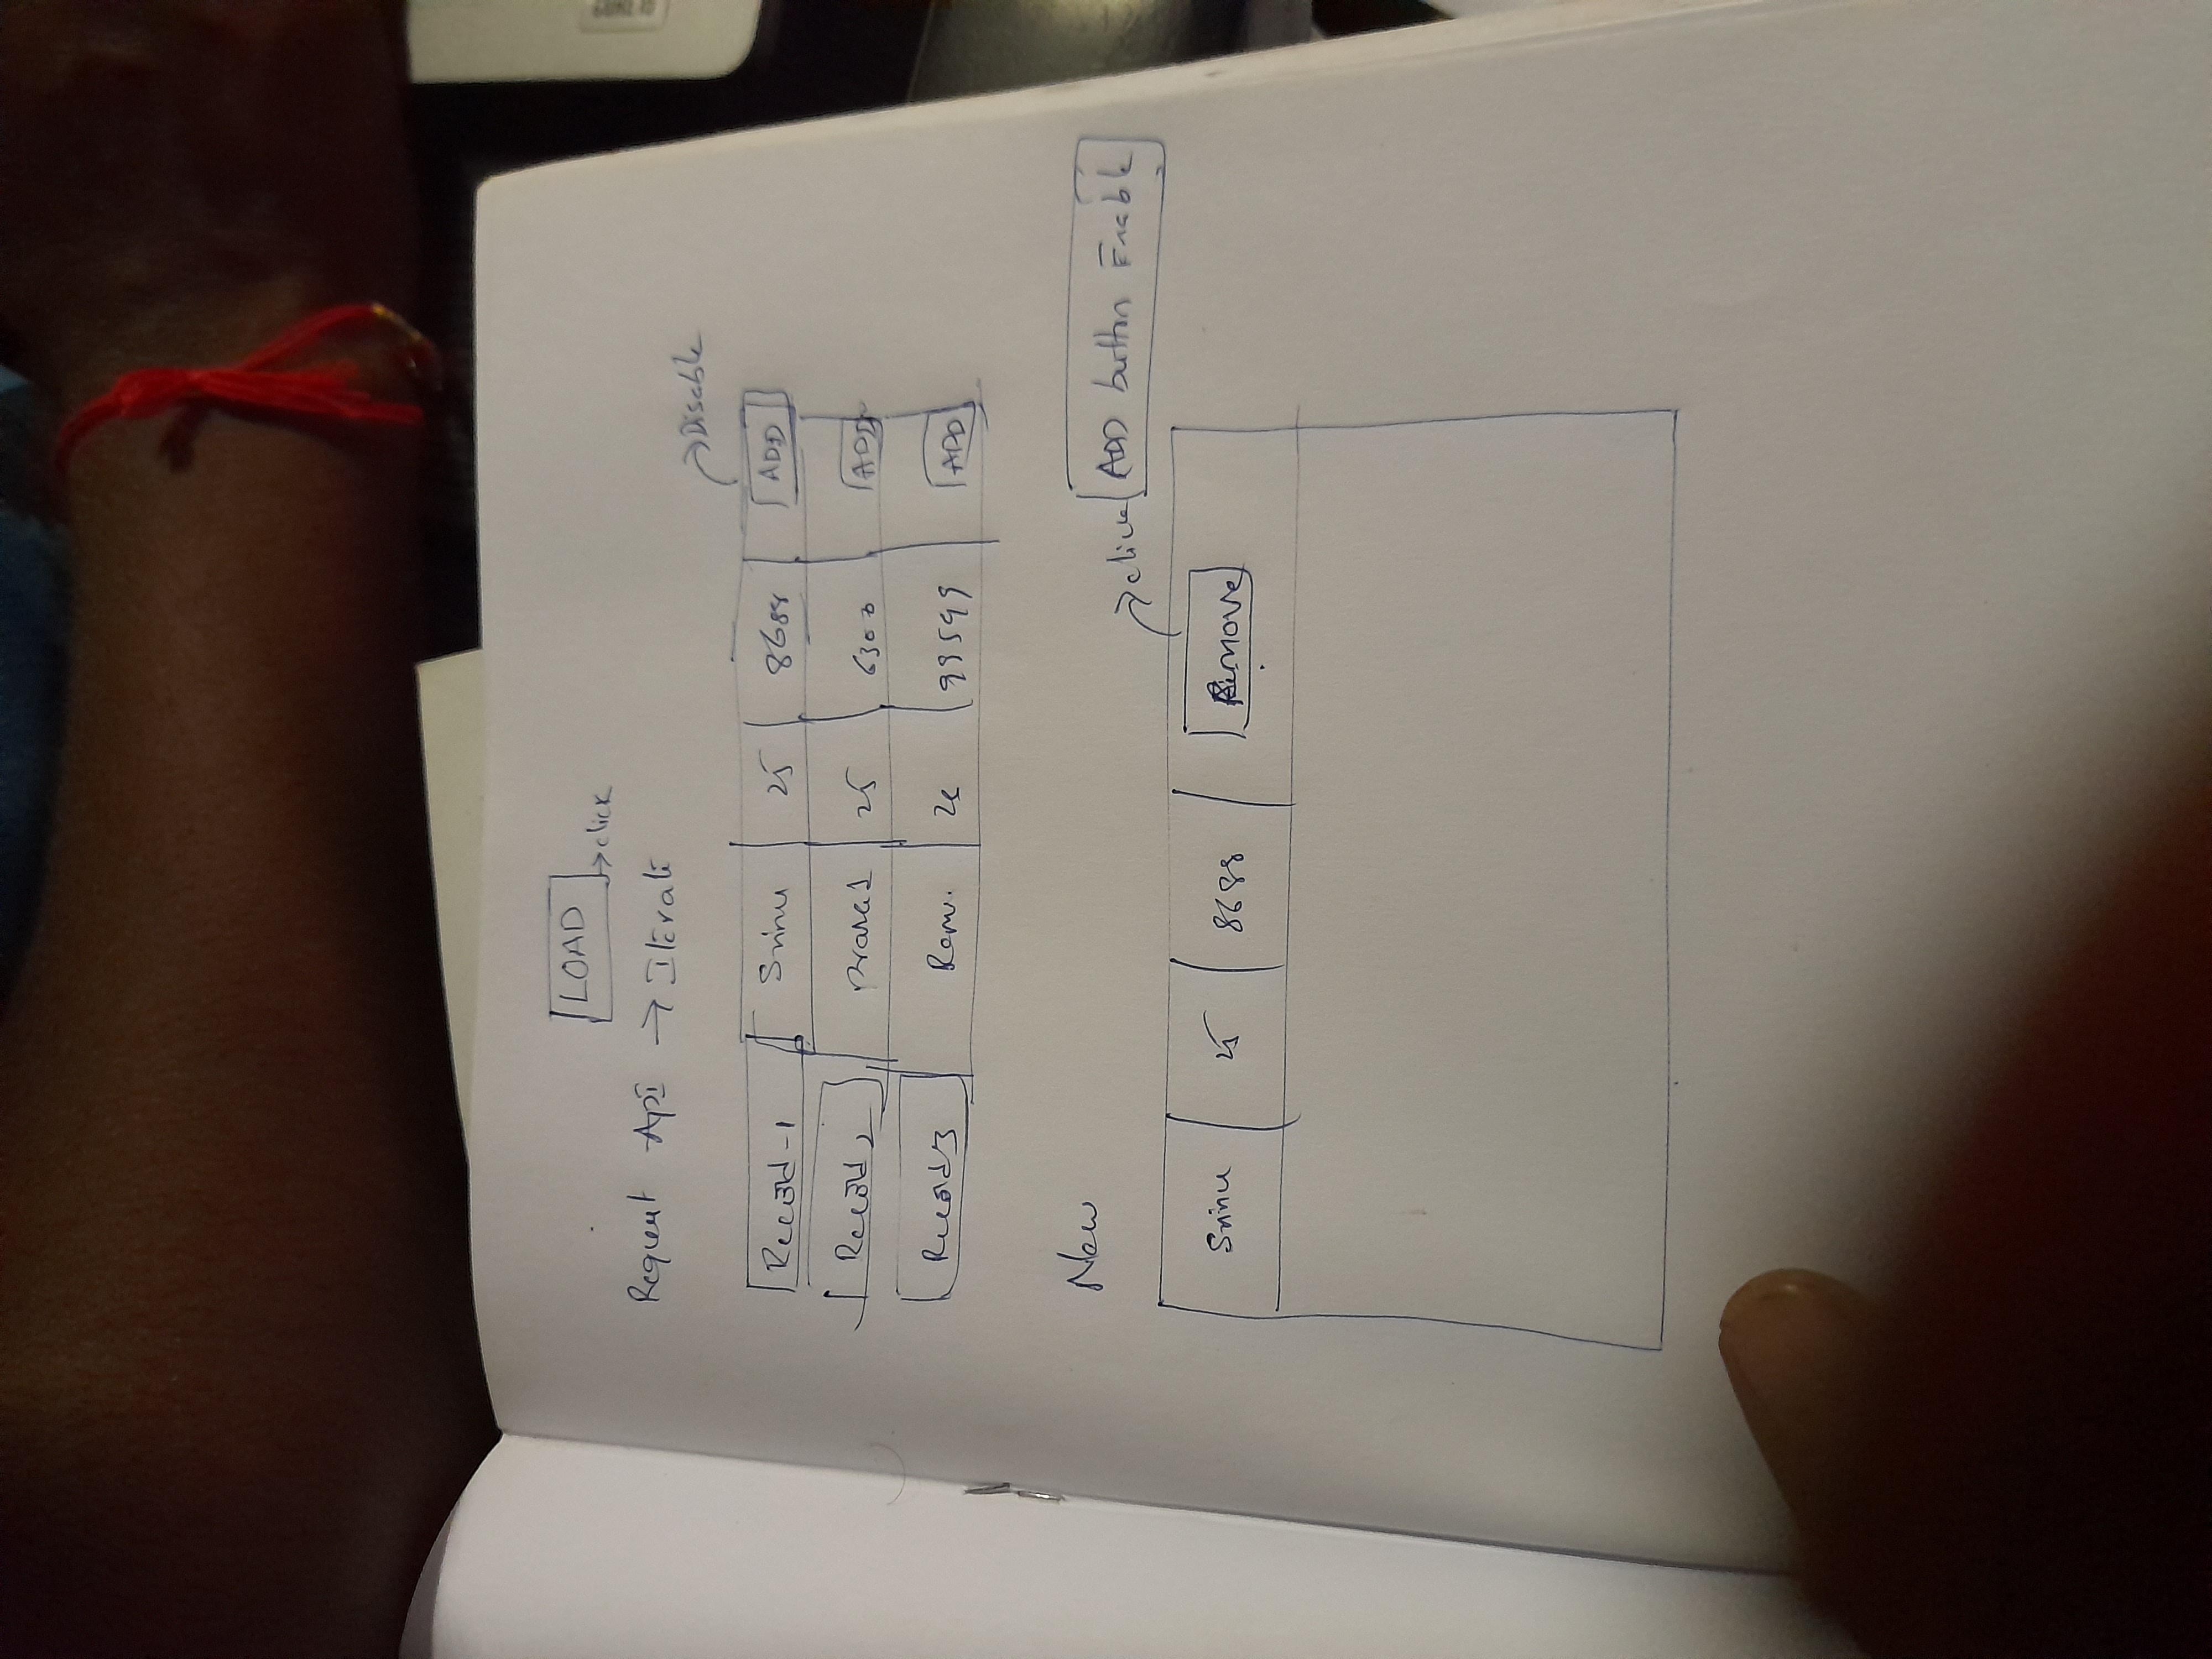 LOAD
→ click
Request Api → Iterate
→ Disable
Record-1 Srinu 25 8688 ADD
Record 2 25 6300 ADD
Record 3 Ramu. 99599 ADD
New
→ click ADD button Enable
Srinu 25 8688 Remove